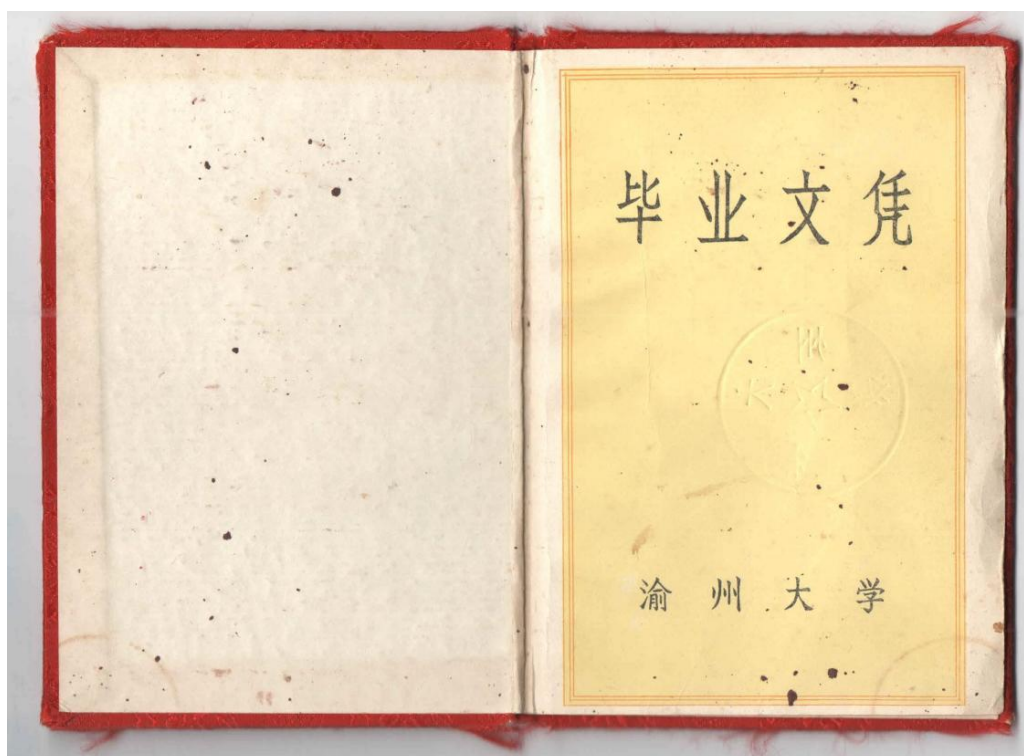 毕业文凭
渝州大学